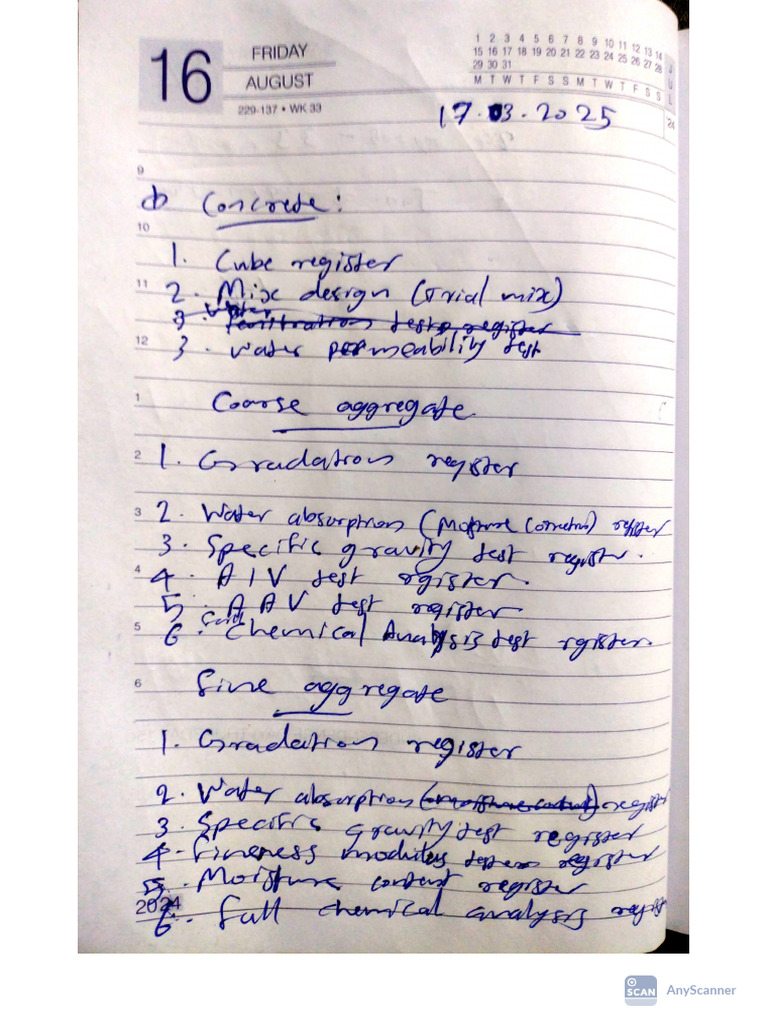 16 FRIDAY
AUGUST
229-137 • WK 33
1 2 3 4 5 6 7 8 9 10 11 12 13 14
15 16 17 18 19 20 21 22 23 24 25 26 27 28
29 30 31
M T W T F S S M T W T F S S
JUL
'24
17.03.2025
9
Concrete:
10
1. Cube register
11 2. Mix design (Trial mix)
3. Water test register
12 3. water permeability test
1 Coarse aggregate.
2 1. Gradation register
3 2. Water absorption (Moisture register
3. Specific gravity test register.
4 4. AIV test rgister.
5. AAV test register
5 6. Chemical Analysis test rgister.
6 fine aggregate
1. Gradation register
2. Water absorption (moisture content) register
3. Specific gravity test register
4. Fineness modulus register
5. Moisture content register
2024
6. Full chemical analysis register
SCAN AnyScanner